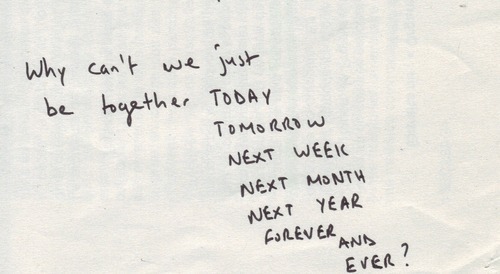 Why can't we just
be together TODAY
TOMORROW
NEXT WEEK
NEXT MONTH
NEXT YEAR
FOREVER
AND
EVER?